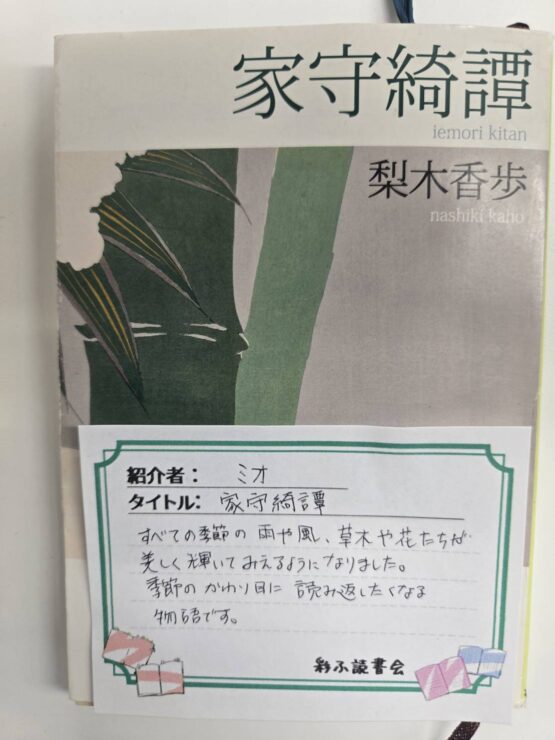 家守綺譚
iemori kitan
梨木香歩
nashiki kaho
紹介者： ミオ
タイトル： 家守綺譚
すべての季節の 雨や風、草木や花たちが
美しく輝いてみえるようになりました。
季節の かわり目に 読み返したくなる
物語です。
彩ふ読書会